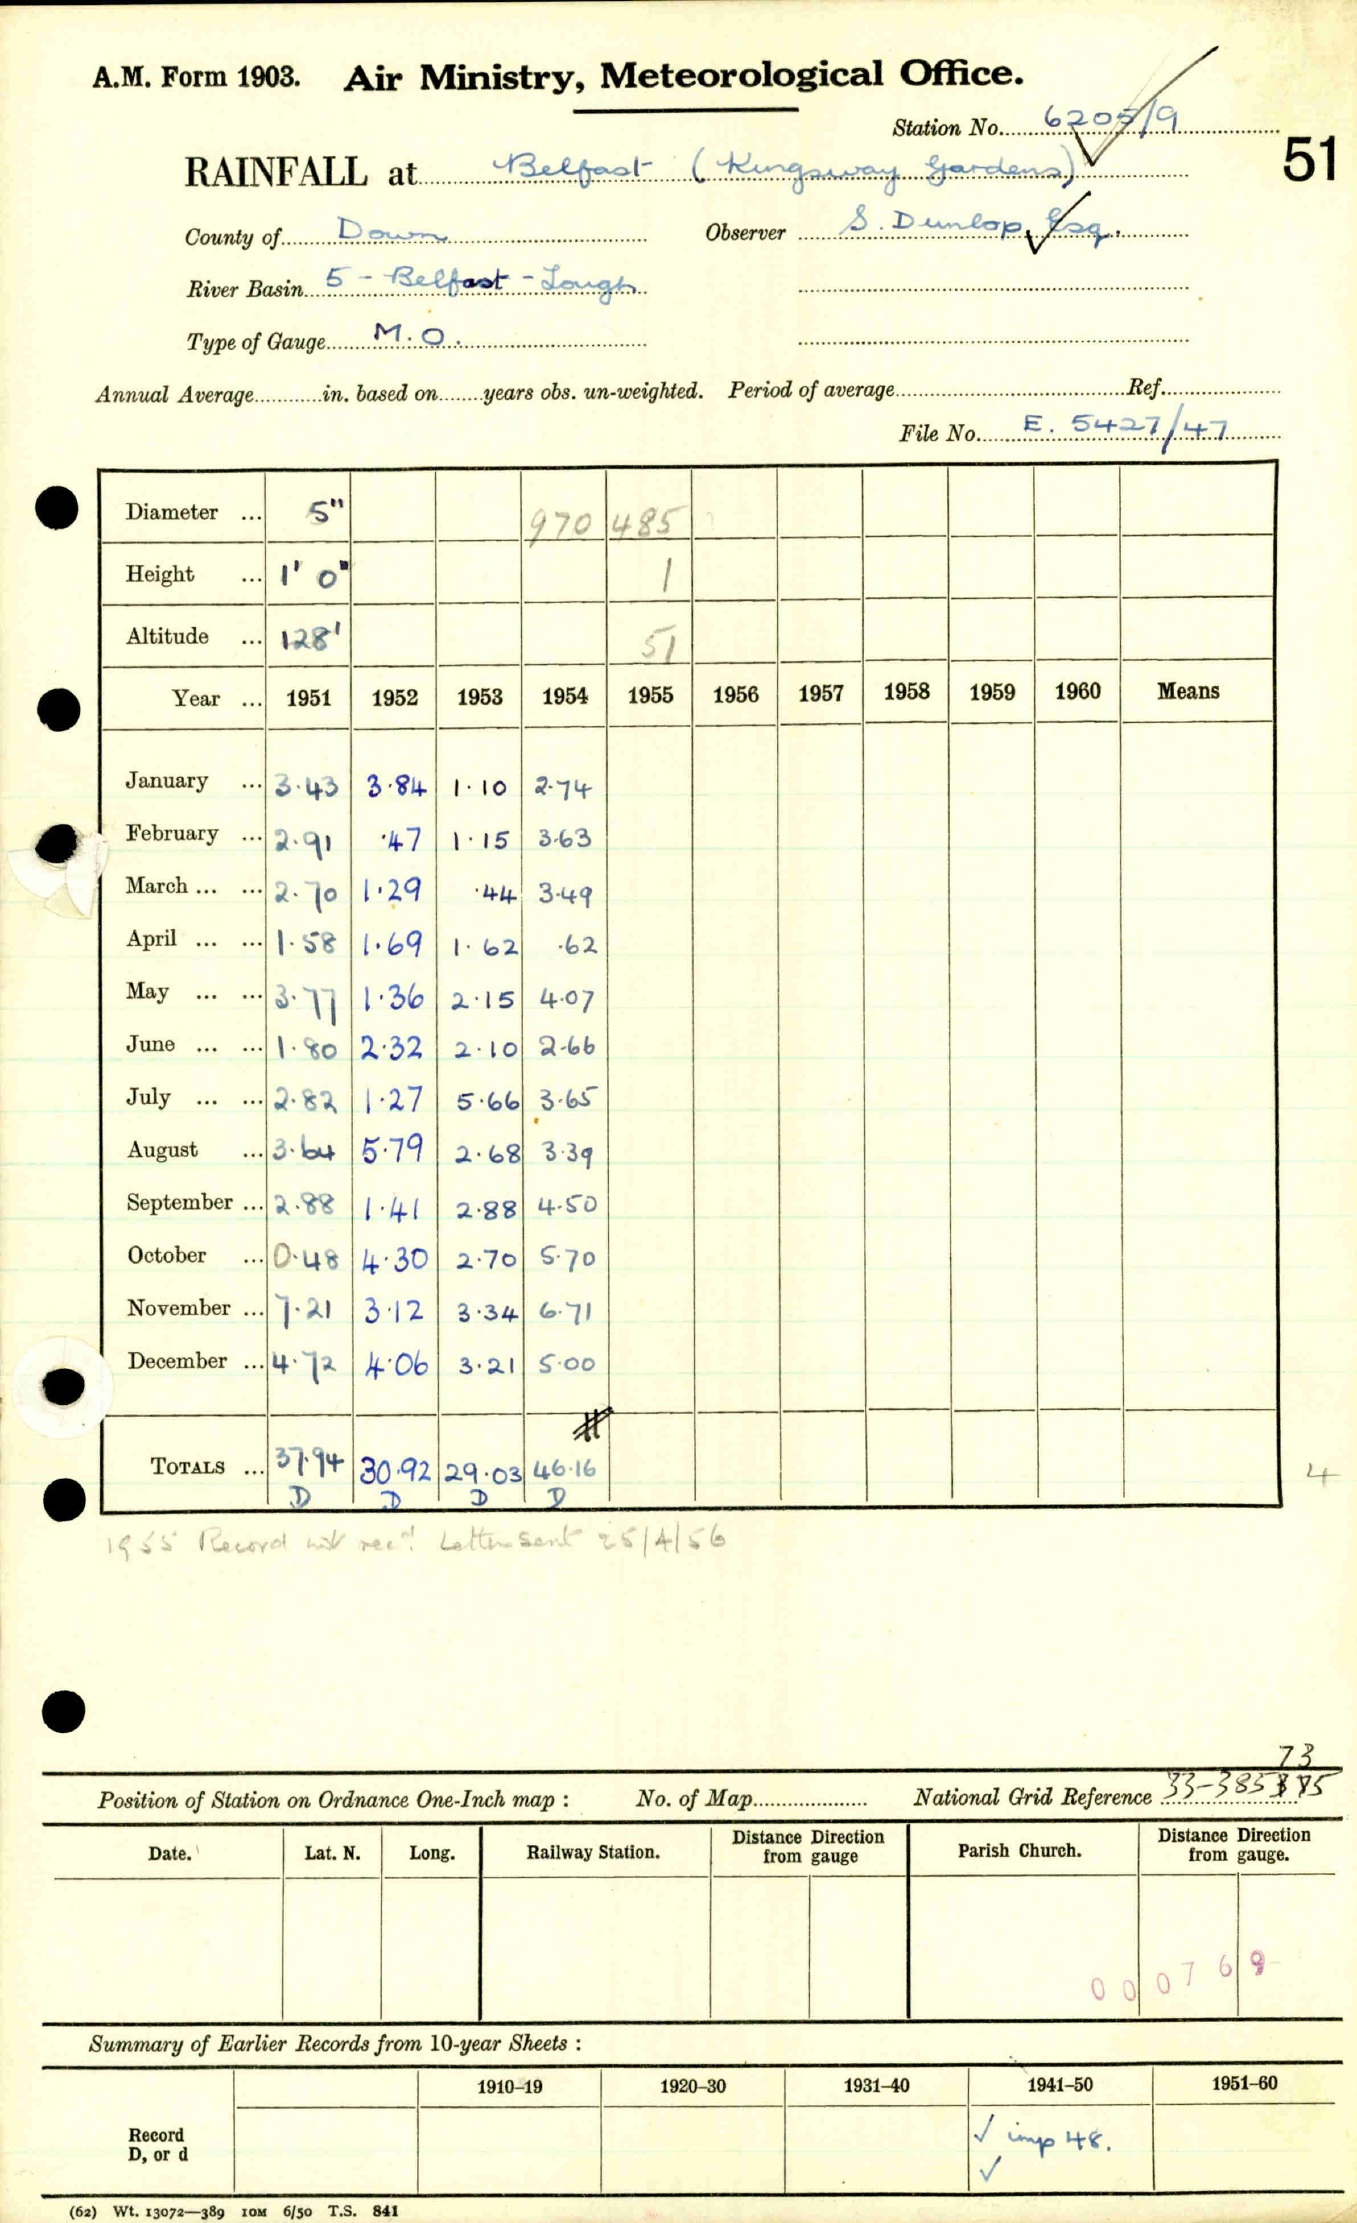 A.M. Form 1903. Air Ministry, Meteorological Office.
Station No. 6205/9
51
RAINFALL at Belfast (Kingsway Gardens)
County of Down Observer S. Dunlop, Esq.
River Basin 5 - Belfast - Lough
Type of Gauge M.O.
Annual Average in. based on years obs. un-weighted. Period of average Ref.
File No. E. 5427/47
Diameter ... 5" 970 485
Height ... 1' 0" 1
Altitude ... 128' 51
Year ... 1951 1952 1953 1954 1955 1956 1957 1958 1959 1960 Means
January ... 3.43 3.84 1.10 2.74
February ... 2.91 .47 1.15 3.63
March ... ... 2.70 1.29 .44 3.49
April ... ... 1.58 1.69 1.62 .62
May ... ... 3.77 1.36 2.15 4.07
June ... ... 1.80 2.32 2.10 2.66
July ... ... 2.82 1.27 5.66 3.65
August ... 3.64 5.79 2.68 3.39
September ... 2.88 1.41 2.88 4.50
October ... 0.48 4.30 2.70 5.70
November ... 7.21 3.12 3.34 6.71
December ... 4.72 4.06 3.21 5.00
TOTALS ... 37.94 30.92 29.03 46.16
D D D D
4
1955 Record not rec'd. Letter sent 25/4/56
73
Position of Station on Ordnance One-Inch map : No. of Map National Grid Reference 33-385
Date. Lat. N. Long. Railway Station. Distance Direction from gauge Parish Church. Distance Direction from gauge.
000769
Summary of Earlier Records from 10-year Sheets :
1910-19 1920-30 1931-40 1941-50 1951-60
Record
D, or d
✓ imp 48.
✓
(62) Wt. 13072—389 10M 6/50 T.S. 841